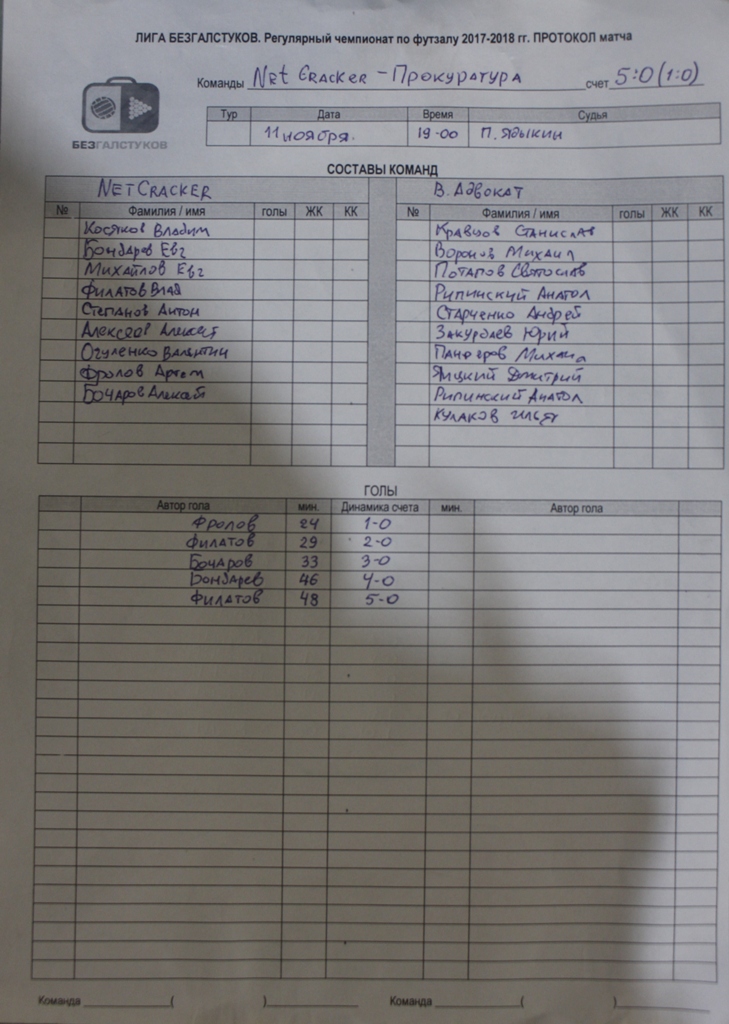 ЛИГА БЕЗГАЛСТУКОВ. Регулярный чемпионат по футзалу 2017-2018 гг. ПРОТОКОЛ матча
Команды Net Cracker - Прокуратура счет 5:0 (1:0)
БЕЗГАЛСТУКОВ
Тур Дата Время Судья
11 ноября. 19-00 П. Ядыкин
СОСТАВЫ КОМАНД
NETCRACKER В. Адвокат
№ Фамилия / имя голы ЖК КК № Фамилия / имя голы ЖК КК
Косяков Владим Кравцов Станислав
Бондарев Евг Воронов Михаил
Михайлов Евг Потапов Святослав
Филатов Влад Рипинский Анатол
Степанов Антон Старченко Андрей
Алексеев Алексей Закурдаев Юрий
Огуленко Валентин Панфёров Михаил
Фролов Артем Яицкий Дмитрий
Бочаров Алексей Рипинский Анатол
Кулаков Илья
ГОЛЫ
Автор гола мин. Динамика счета мин. Автор гола
Фролов 24 1-0
Филатов 29 2-0
Бочаров 33 3-0
Бондарев 46 4-0
Филатов 48 5-0
Команда ____________( )____________ Команда ____________( )____________